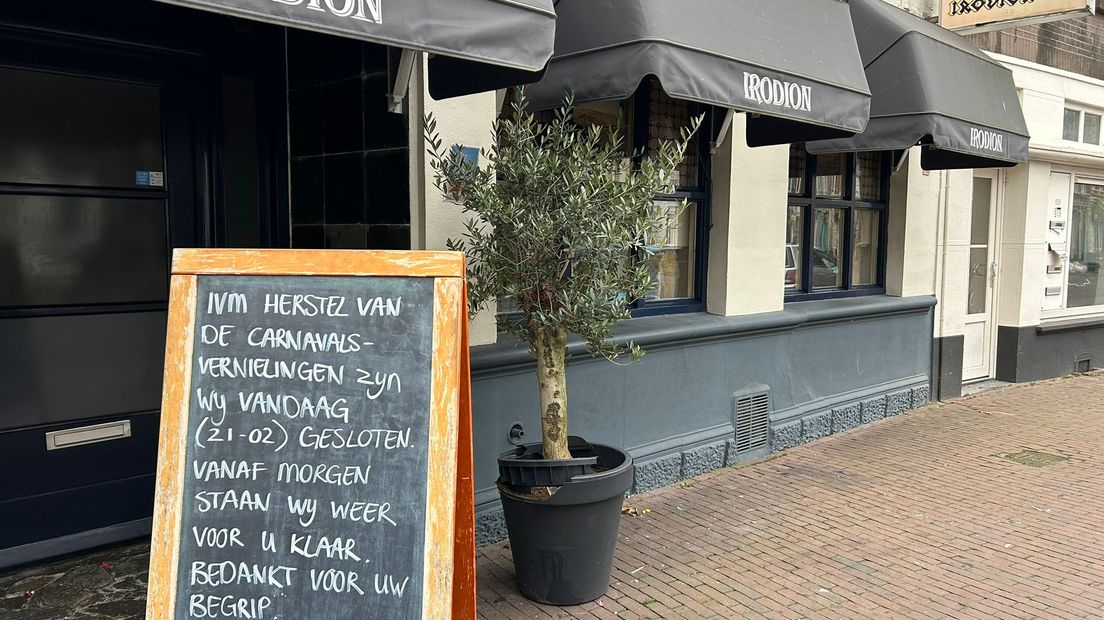 IRODION
IRODION
IRODION
IRODION
IVM HERSTEL VAN
DE CARNAVALS-
VERNIELINGEN ZYN
WY VANDAAG
(21-02) GESLOTEN.
VANAF MORGEN
STAAN WY WEER
VOOR U KLAAR.
BEDANKT VOOR UW
BEGRIP.